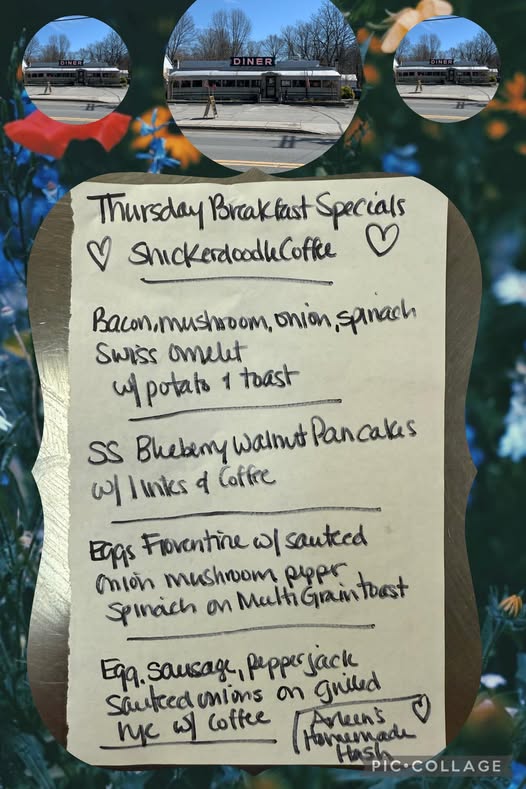 DINER
DINER
DINER
Thursday Breakfast Specials
Snickerdoodle Coffee
Bacon, mushroom, onion, spinach
Swiss omelet
w/ potato & toast
SS Blueberry Walnut Pancakes
w/ links & Coffee
Eggs Florentine w/ sauteed
onion mushroom pepper
spinach on MultiGrain toast
Egg, sausage, pepperjack
sauteed onions on grilled
rye w/ Coffee
Arleen's
Homemade
Hash
PIC•COLLAGE